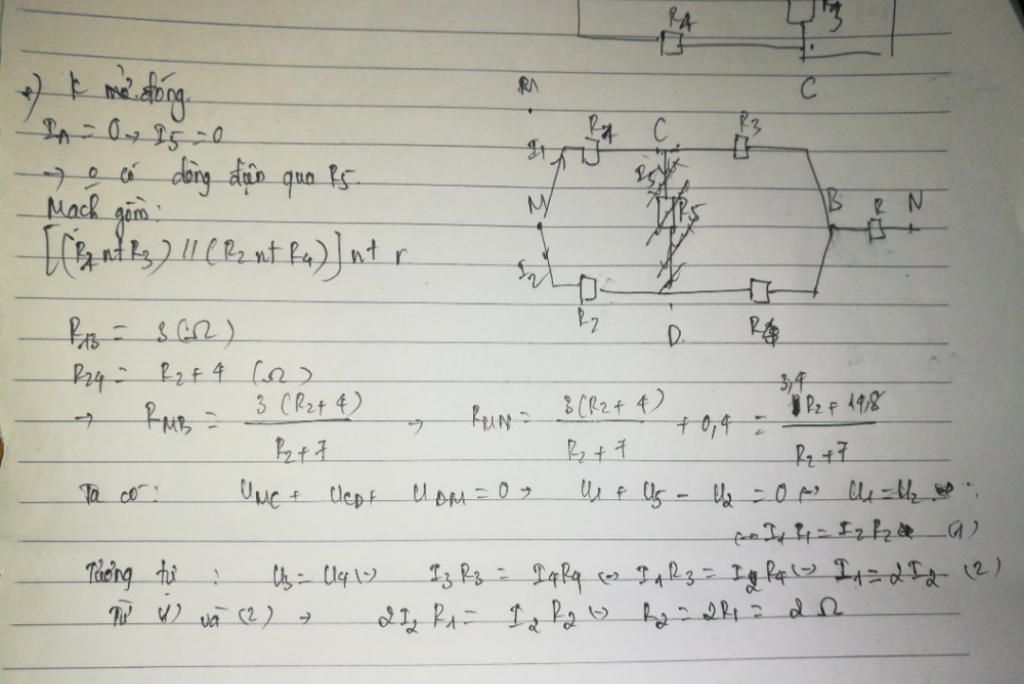 R4
R3
+) K mở đóng.
R1
C
IA = 0 → I5 = 0
R1
C
R3
I1
→ o có dòng điện qua R5.
I5
R5
Mạch gồm:
M
B
R
N
[(R1 nt R3) // (R2 nt R4)] nt r
I2
R2
D
R4
R13 = 3 (Ω)
R24 = R2 + 4 (Ω)
→ RMB = 3(R2 + 4) / R2 + 7 → RMN = 3(R2 + 4) / R2 + 7 + 0,4 = 3,4 R2 + 14,8 / R2 + 7
Ta có: UMC + UCD + UDM = 0 → U1 + U5 - U2 = 0 ↔ U1 = U2
↔ I1 R1 = I2 R2 (1)
Tương tự : U3 = U4 ↔ I3 R3 = I4 R4 ↔ I1 R3 = I2 R4 ↔ I1 = 2 I2 (2)
Từ (1) và (2) → 2 I2 R1 = I2 R2 ↔ R2 = 2R1 = 2 Ω